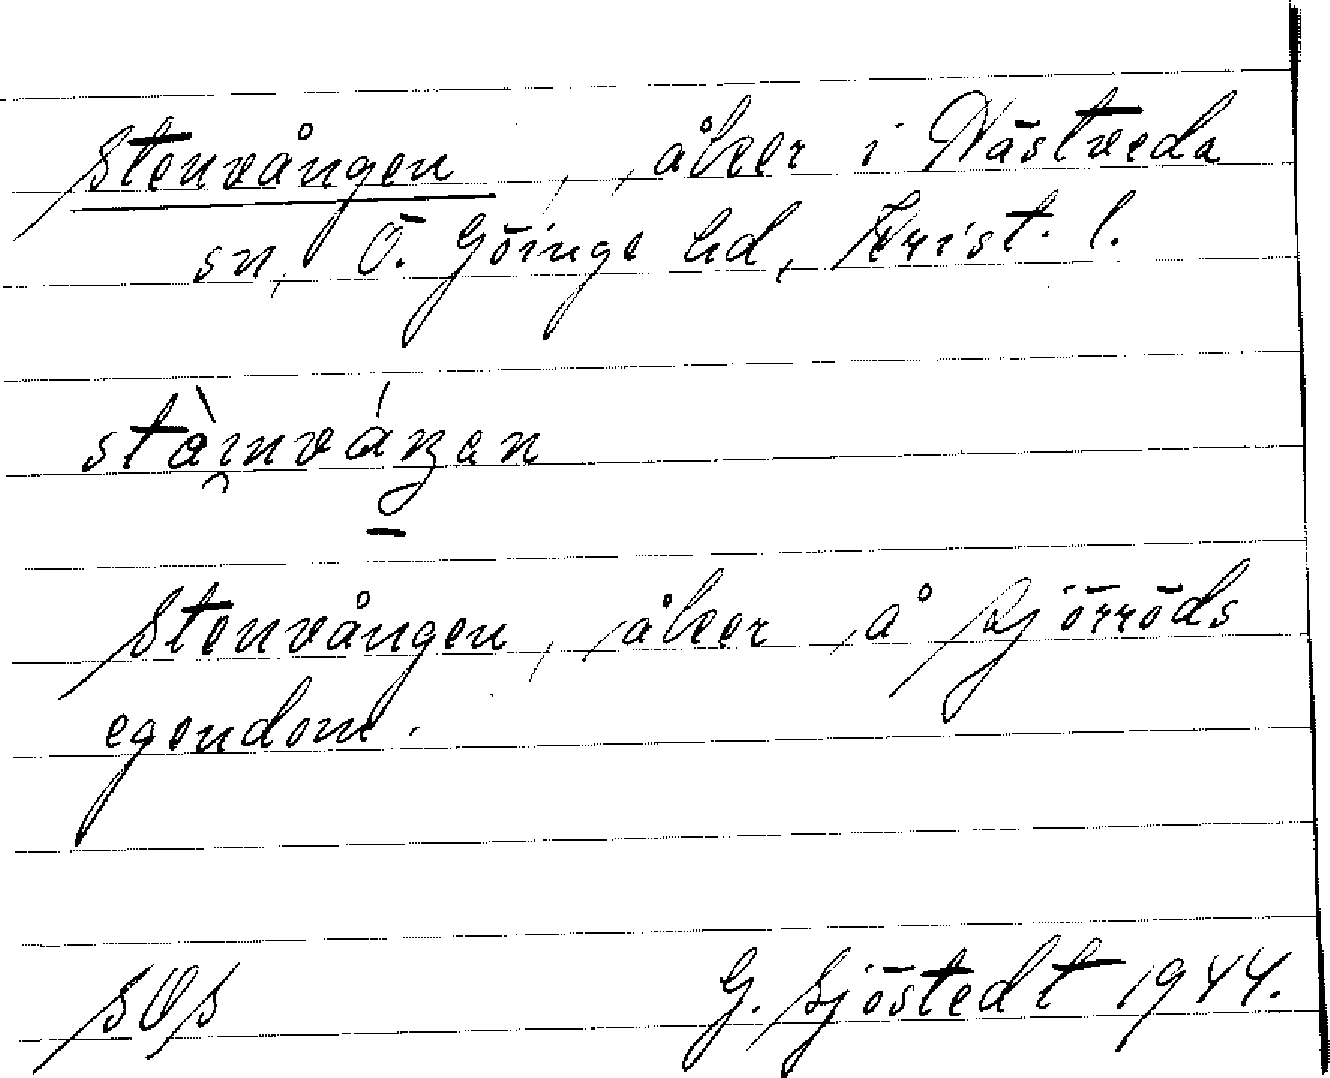 Stenvången, åker i Nästveda
sn, Ö. Göinge hd, Krist. l.
Stenvången, åker å Sjörröds
egendom.
SOS G. Sjöstedt 1944.